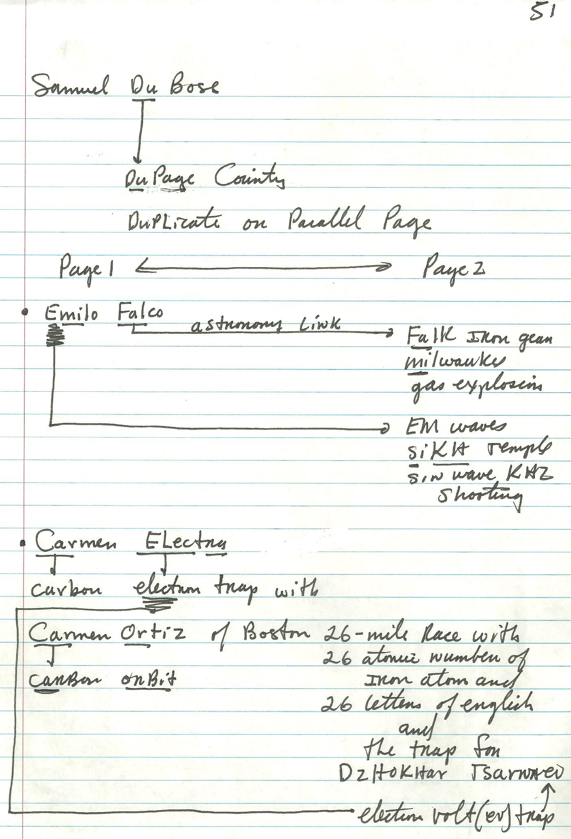 51
Samuel Du Bose
DuPage County
DuPLicate on Parallel Page
Page 1 Page 2
• Emilo Falco astronomy Link
Falk Iron gear
milwaukee
gas explosion
EM waves
SiKH Temple
sin wave KHZ
shooting
• Carmen ELectra
carbon electron trap with
Carmen Ortiz of Boston 26-mile Race with
carbon orBit 26 atomic number of
Iron atom and
26 letters of english
and
the trap for
DzHoKHar Tsarnaev
electron volt (ev) trap